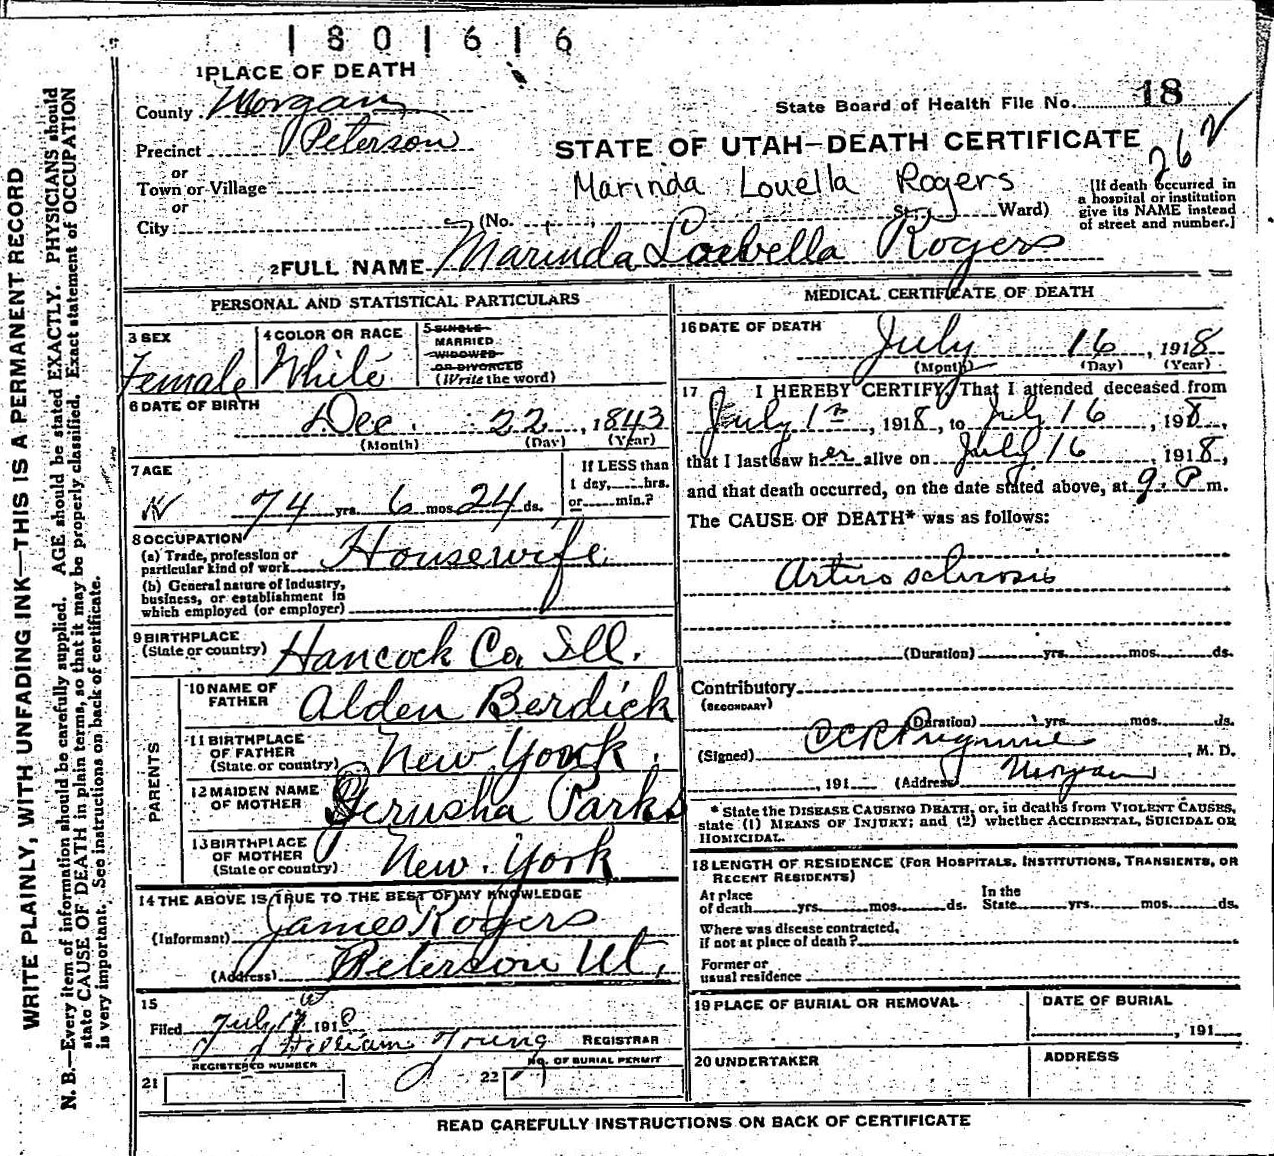 1801616
1 PLACE OF DEATH
County Morgan
State Board of Health File No. 18
Precinct Peterson
STATE OF UTAH—DEATH CERTIFICATE
262
or
Town or Village
Marinda Louella Rogers
[If death occurred in
a hospital or institution
give its NAME instead
of street and number.]
or
City (No. St., Ward)
2 FULL NAME Marinda Loevella Rogers
PERSONAL AND STATISTICAL PARTICULARS
3 SEX
Female
4 COLOR OR RACE
White
5 SINGLE
MARRIED
WIDOWED
OR DIVORCED
(Write the word)
6 DATE OF BIRTH
Dec. 22, 1843
(Month) (Day) (Year)
7 AGE
74 yrs. 6 mos. 24 ds.
If LESS than
1 day, hrs.
or min.?
8 OCCUPATION
(a) Trade, profession or
particular kind of work Housewife
(b) General nature of Industry,
business, or establishment in
which employed (or employer)
9 BIRTHPLACE
(State or country) Hancock Co. Ill.
PARENTS
10 NAME OF
FATHER Alden Berdick
11 BIRTHPLACE
OF FATHER
(State or country) New York.
12 MAIDEN NAME
OF MOTHER Jerusha Parks
13 BIRTHPLACE
OF MOTHER
(State or country) New. York
14 THE ABOVE IS TRUE TO THE BEST OF MY KNOWLEDGE
(Informant) James Rogers
(Address) Peterson Ut.
15
Filed July 1918
William Young REGISTRAR
REGISTERED NUMBER
21
NO. OF BURIAL PERMIT
22
MEDICAL CERTIFICATE OF DEATH
16 DATE OF DEATH
July 16, 1918
(Month) (Day) (Year)
17 I HEREBY CERTIFY, That I attended deceased from
July 1st, 1918, to July 16, 1918,
that I last saw her alive on July 16 1918,
and that death occurred, on the date stated above, at 9. P m.
The CAUSE OF DEATH* was as follows:
Arterosclirosis
(Duration) yrs. mos. ds.
Contributory
(SECONDARY)
(Duration) yrs. mos. ds.
(Signed) , M. D.
, 191 (Address) Morgan
* State the DISEASE CAUSING DEATH, or, in deaths from VIOLENT CAUSES,
state (1) MEANS OF INJURY; and (2) whether ACCIDENTAL, SUICIDAL OR
HOMICIDAL.
18 LENGTH OF RESIDENCE (FOR HOSPITALS, INSTITUTIONS, TRANSIENTS, OR
RECENT RESIDENTS)
At place
of death yrs. mos. ds.
In the
State yrs. mos. ds.
Where was disease contracted,
if not at place of death?
Former or
usual residence
19 PLACE OF BURIAL OR REMOVAL
DATE OF BURIAL
, 191
20 UNDERTAKER
ADDRESS
READ CAREFULLY INSTRUCTIONS ON BACK OF CERTIFICATE
WRITE PLAINLY, WITH UNFADING INK—THIS IS A PERMANENT RECORD
N. B.—Every item of information should be carefully supplied. AGE should be stated EXACTLY. PHYSICIANS should
state CAUSE OF DEATH in plain terms, so that it may be properly classified. Exact statement of OCCUPATION
is very important. See instructions on back of certificate.